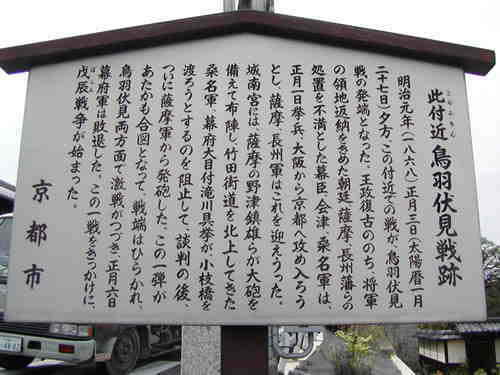 此付近 鳥羽伏見戦跡
明治元年(一八六八)正月三日(太陽暦一月
二十七日)夕方、この付近での戦が、鳥羽伏見
戦の発端となった。王政復古ののち、将軍
の領地返納をきめた朝廷、薩摩、長州藩らの
処置を不満とした幕臣、会津、桑名軍は、
正月一日挙兵、大阪から京都へ攻め入ろう
とし、薩摩、長州軍はこれを迎えうった。
城南宮には、薩摩の野津鎮雄らが大砲を
備えて布陣し、竹田街道を北上してきた
桑名軍、幕府大目付滝川具挙が、小枝橋を
渡ろうとするのを阻止して、談判の後、
ついに薩摩軍から発砲した。この一弾が
あたかも合図となって、戦端はひらかれ、
鳥羽伏見両方面で激戦がつづき、正月六日
幕府軍は敗退した。この一戦をきっかけに、
戊辰戦争が始まった。
京都市